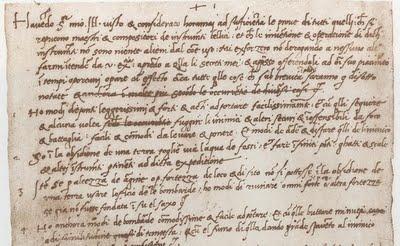 Havēdo S.r mio Ill. visto & considerato horamai ad sufficiētia le prove di tutti quelli che si
reputono maestri & compositori de instrumēti bellici: et che le invētione & operatione di dicti
instrumēti non sono niente alieni dal cōe uso: mi exforzero no derogando a nessuno altro
farmi intender da v. ex.: aprēdo a quella li secreti mei: & appresso offerendoli ad ōi suo piacimēto
in tempi oportuni operare cū effecto circa tutte quelle cose che sub brevita sarāno qui di sotto
notate
Ho modi de ponti leggerissimi & forti & acti ad portare facilissimamēte: & cū quelli seguire
& alcuna volta fuggire li inimici & altri securi & inoffensibili da foco
& battaglia: facili & cōmodi da levare & ponere. & modi de ardere & disfare quelli de linimico
So in la obsidione de una terra toglier via laqua de fossi: & fare infiniti pōti ghatti & scale
& altri instrumēti ptinēti ad dicta expeditione
Itē se p altezza de argine o p fortezza de loco & di sito no si pottesse in la obsidione de
una terra usare lofficio de le bombarde: ho modi di ruinare omni o altra fortezza
se gia no fusse fondata in su el saxo
Ho anchora modi de bombarde cōmodissime & facile ad portare: & cū quelle buttare minuti
ad di tempesta: & cū el fumo di quella dando grāde spavēto al inimico